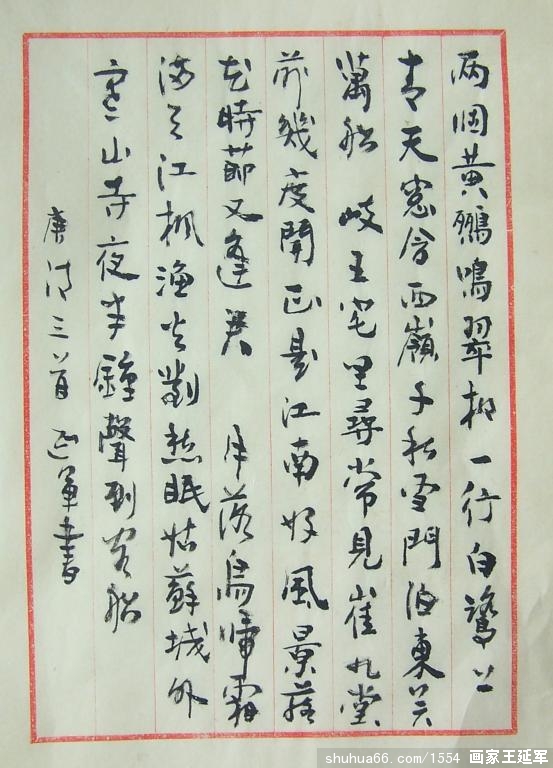 两個黄鸝鳴翠柳一行白鷺上
青天窓含西嶺千秋雪門泊東吴
萬船 岐王宅里尋常見崔九堂
前幾度聞正是江南好風景落
花時節又逢君 月落烏啼霜
满天江楓漁火對愁眠姑蘇城外
寒山寺夜半鐘聲到客船
唐诗三首 延軍書
shuhua66.com/1554 画家王延军